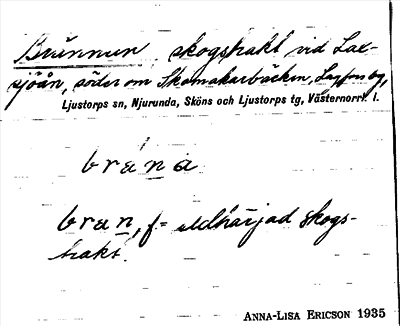 Brännan, skogstrakt vid Lax-
sjöån, söder om Skomakarbäcken,
Ljustorps sn, Njurunda, Sköns och Ljustorps tg, Västernorrl. l.
brána
bran, f = eldhärjad skogs-
trakt.
ANNA-LISA ERICSON 1935